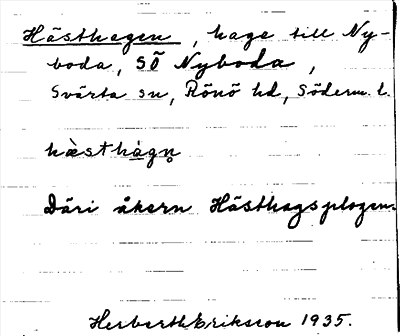 Hästhagen, hage till Ny-
boda, SÖ Nyboda,
Svärta sn, Rönö hd, Söderm. l.
hæ̀sthàgn̥
Däri åkern Hästhagsplogen.
Herberth Eriksson 1935.